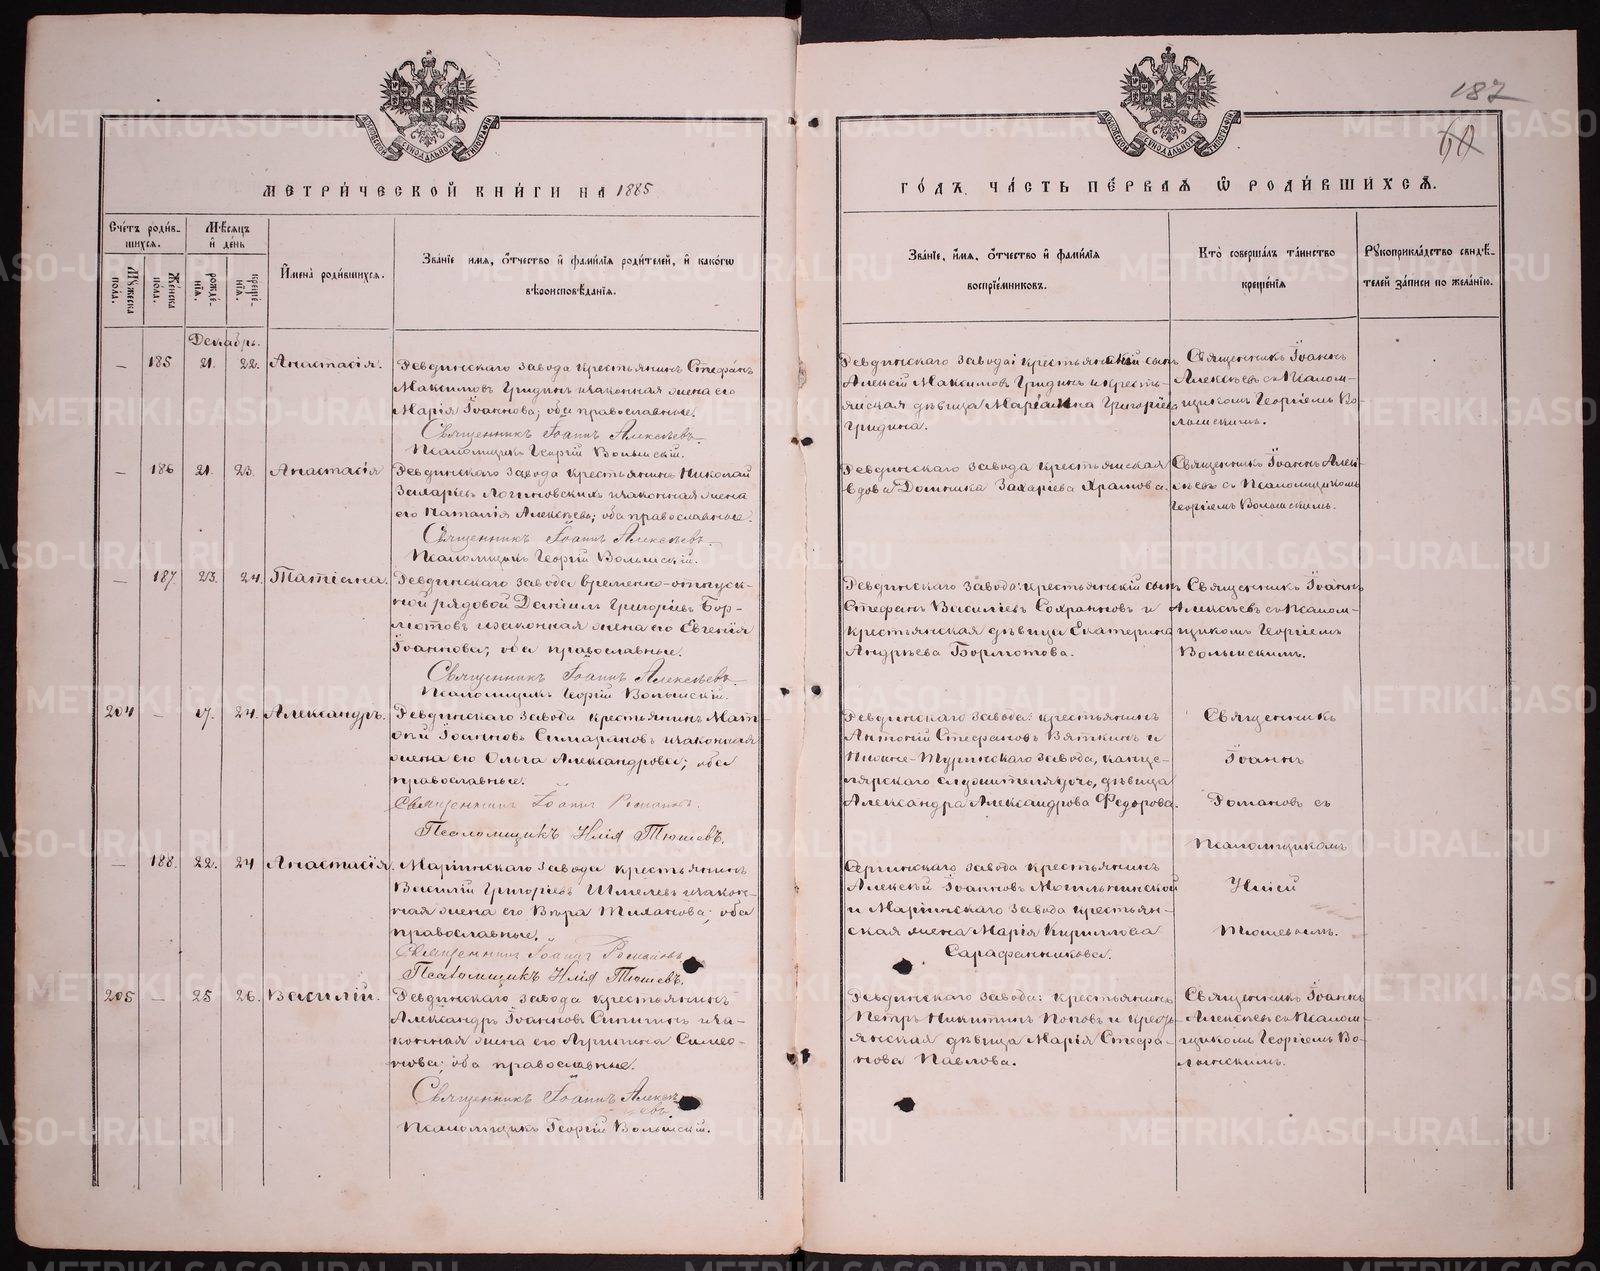 187
60
МЕТРИ́ЧЕСКОЙ КНИ́ГИ НА 1885
ГО́ДЪ, ЧА́СТЬ ПЕ́РВАѦ Ѽ РОДИ́ВШИХСѦ.
Сче́тъ роди́в-
шихся.
Мѣ́сяцъ
и де́нь
Мꙋ́жеска
по́ла.
Же́нска
по́ла.
рожде́-
нїя.
креще́-
нїя.
Имена̀ роди́вшихся.
Зва́нїе имя, о́тчество и фами́лїя роди́телей, и како́гѡ
вѣроисповѣ́данїя.
Зва́нїе, и́мя, о́тчество и фами́лїя
воспрїе́мниковъ.
Кто̀ соверша́лъ та́инство
креще́нїя
Рꙋкоприкла́дство свидѣ́-
телей за́писи по жела́нїю.
Декабрь.
— 185 21. 22. Анастасія.
Ревдинскаго завода крестьянинъ Стефанъ
Максимовъ Гридинъ и законная жена его
Марія Іоаннова; оба православные.
Священникъ Іоаннъ Алексѣевъ
Псаломщикъ Георгій Волынскій.
Ревдинскаго завода: крестьянскій сынъ
Алексій Максимовъ Гридинъ и кресть-
янская дѣвица Маріанна Григоріева
Гридина.
Священникъ Іоаннъ
Алексѣевъ съ Псалом-
щикомъ Георгіемъ Во-
лынскимъ.
— 186 21. 23. Анастасія
Ревдинскаго завода крестьянинъ Николай
Логиновскихъ и законная жена
его Наталія Алексѣева; оба православные.
Священникъ Іоаннъ Алексѣевъ
Псаломщикъ Георгій Волынскій.
Ревдинскаго завода крестьянская
вдова Домника Захаріева Храмова.
Священникъ Іоаннъ Алек-
сѣевъ съ Псаломщикомъ
Георгіемъ Волынскимъ.
— 187. 23. 24. Татіана.
Ревдинскаго завода временно-отпуск-
ной рядовой Даніилъ Григоріевъ Бор-
мотовъ и законная жена его Евгенія
Іоаннова; оба православные.
Священникъ Іоаннъ Алексѣевъ
Псаломщикъ Георгій Волынскій.
Ревдинскаго завода: крестьянскій сынъ
Стефанъ Василіевъ Сохранновъ и
крестьянская дѣвица Екатерина
Андрѣева Бормотова.
Священникъ Іоаннъ
Алексѣевъ съ Псалом-
щикомъ Георгіемъ
Волынскимъ.
204 — 17. 24. Александръ.
Ревдинскаго завода крестьянинъ Мат-
ѳій Іоанновъ и законная
жена его Ольга Александрова; оба
православные.
Священникъ Іоаннъ Романовъ.
Псаломщикъ Илія Тюшевъ.
Ревдинскаго завода: крестьянинъ
Антоній Стефановъ Вяткинъ и
Нижне-Туринскаго завода, канце-
лярскаго служителя дочь, дѣвица
Александра Александрова Федорова.
Священникъ
Іоаннъ
Романовъ съ
Псаломщикомъ
Иліей
Тюшевымъ.
— 188. 22. 24 Анастасія.
Маріинскаго завода крестьянинъ
Василій Григоріевъ Шмелевъ и закон-
ная жена его Вѣра Тиханова; оба
православные.
Священникъ Іоаннъ Романовъ
Псаломщикъ Илія Тюшевъ.
Сергинскаго завода крестьянинъ
Алексѣй Іоанновъ
и Маріинскаго завода крестьян-
ская жена Марія Кириллова
Сарафанникова.
205 — 25 26. Василій.
Ревдинскаго завода крестьянинъ
Александръ Іоанновъ и за-
конная жена его Симео-
нова; оба православные.
Священникъ Іоаннъ Алексѣ-
евъ.
Псаломщикъ Георгій Волынскій.
Ревдинскаго завода: крестьянинъ
Петръ Никитинъ Поповъ и кресть-
янская дѣвица Марія Стефа-
нова Павлова.
Священникъ Іоаннъ
Алексѣевъ съ Псалом-
щикомъ Георгіемъ Во-
лынскимъ.
METRIKI.GASO-URAL.RU